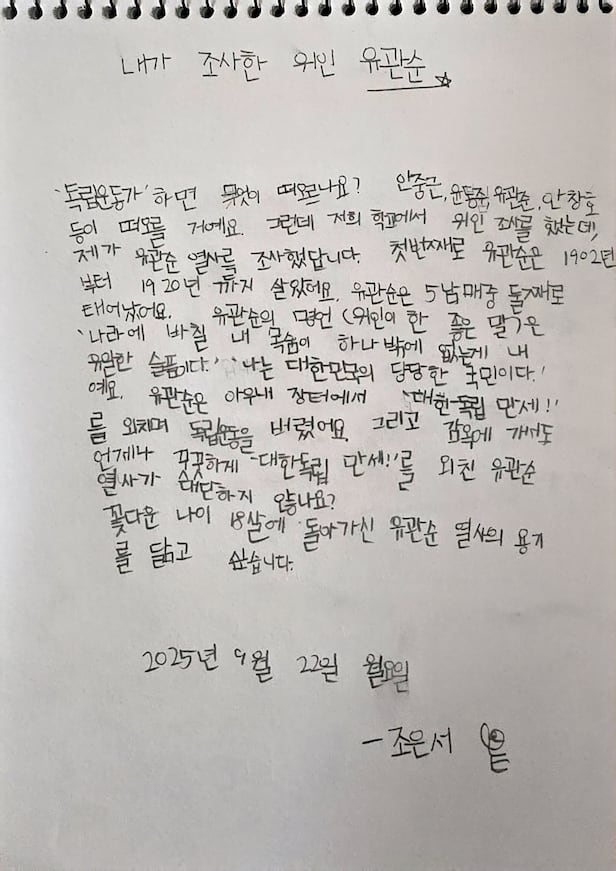 내가 조사한 위인 유관순
'독립운동가' 하면 무엇이 떠오르나요? 안중근, 윤동주, 유관순, 안창호
등이 떠오를 거예요. 그런데 저희 학교에서 위인 조사를 했는데,
제가 유관순 열사를 조사했답니다. 첫번째로 유관순은 1902년
부터 1920년 까지 살았어요. 유관순은 5남매중 둘째로
태어났어요. 유관순의 명언 (위인이 한 좋은 말)은
'나라에 바칠 내 목숨이 하나밖에 없는게 내
유일한 슬픔이다.' '나는 대한민국의 당당한 국민이다.'
예요. 유관순은 아우내 장터에서 '대한독립 만세!'
를 외치며 독립운동을 버렸어요. 그리고 감옥에 개서도
언제나 꿋꿋하게 '대한독립 만세!'를 외친 유관순
열사가 대단하지 않나요?
꽃다운 나이 18살에 돌아가신 유관순 열사의 용기
를 닮고 싶습니다.
2025년 9월 22일 월요일
- 조은서